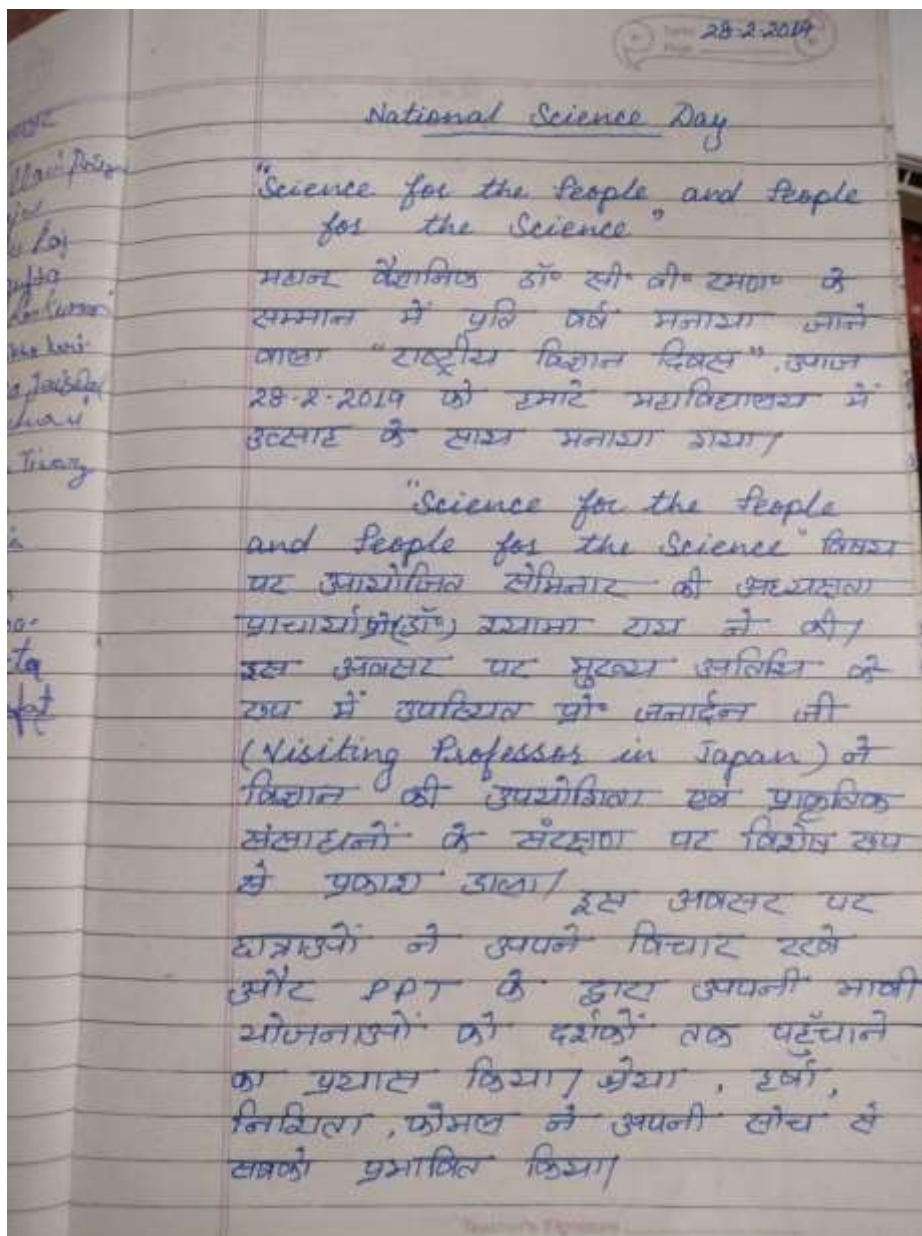 28-2-2019
National Science Day
"Science for the People and People
for the Science"
महान वैज्ञानिक डॉ० सी० वी० रमण० के
सम्मान में प्रति वर्ष मनाया जाने
वाला "राष्ट्रीय विज्ञान दिवस" आज
28-2-2019 को हमारे महाविद्यालय में
उत्साह के साथ मनाया गया/
"Science for the People
and People for the Science" विषय
पर आयोजित सेमिनार की अध्यक्षता
प्राचार्या प्रो(डॉ०) श्यामा राय ने की/
इस अवसर पर मुख्य अतिथि के
रूप में उपस्थित प्रो० जनार्दन जी
(Visiting Professor in Japan) ने
विज्ञान की उपयोगिता एवं प्राकृतिक
संसाधनों के संरक्षण पर विशेष रूप
से प्रकाश डाला/ इस अवसर पर
छात्राओं ने अपने विचार रखे
और PPT के द्वारा अपनी भावी
योजनाओं को दर्शकों तक पहुँचाने
का प्रयास किया/ श्रेया, हर्षा,
निशिता, कोमल ने अपनी सोच से
सबको प्रभावित किया/
Teacher's Signature